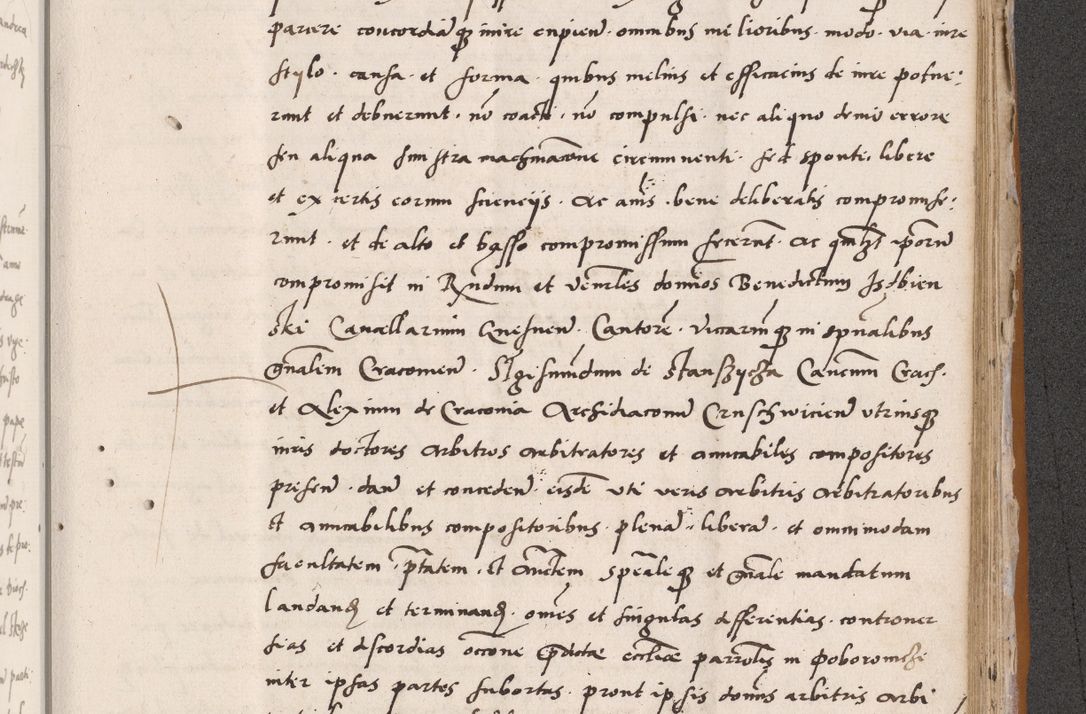 parcere concordiāqȝ inire cupien̄ · omnibus melioribus · modo · via · iure
stylo · causa · et forma · quibus melius et efficacius de iure potue:
runt et debuerunt · nō coacti · nō compulsi · nec aliquo demū errore
seu aliqua sinistra machinacōne circumuenti · sed sponte, libere
et ex certis eorum sciencijs · Ac aīs · bene deliberatis compromise:
runt · et de alto et basso compromissum fecerūt · Ac quilȝt ipsorū
compromisit in Rn̄dum et Vēnrles domīos Benedictum Jsdbien
ski Cancellarium Gnesnen̄ · Cantorē · Vicariūqȝ in sp̄ualibus
gn̄alem Cracouien̄ · Sigismūdum de Stanszycza Canēum Crac̄ ·
et Alexium de Cracouia Archidiaconū Cruschwicien̄ vtriusqȝ
iuris doctores Arbitros arbitratores et amicabiles compositores
presen̄ · dan̄ et conceden̄ · eisdē vti veris arbitris Arbitratoribus
Et Amicabilibus compositoribus · plenā · liberā · et omnimodam
facultatem · p̄tatem · Et Auc̄tem speāleqȝ et gn̄ale mandatum
laudandȝ et terminandȝ · om̄es et singulas differentias · controuer
sias et discordias occōne p̄dictæ ecclīæ parrolīs in Poborowicze
inter ipsas partes subortas · prout ipsis domīs arbitris Arbi